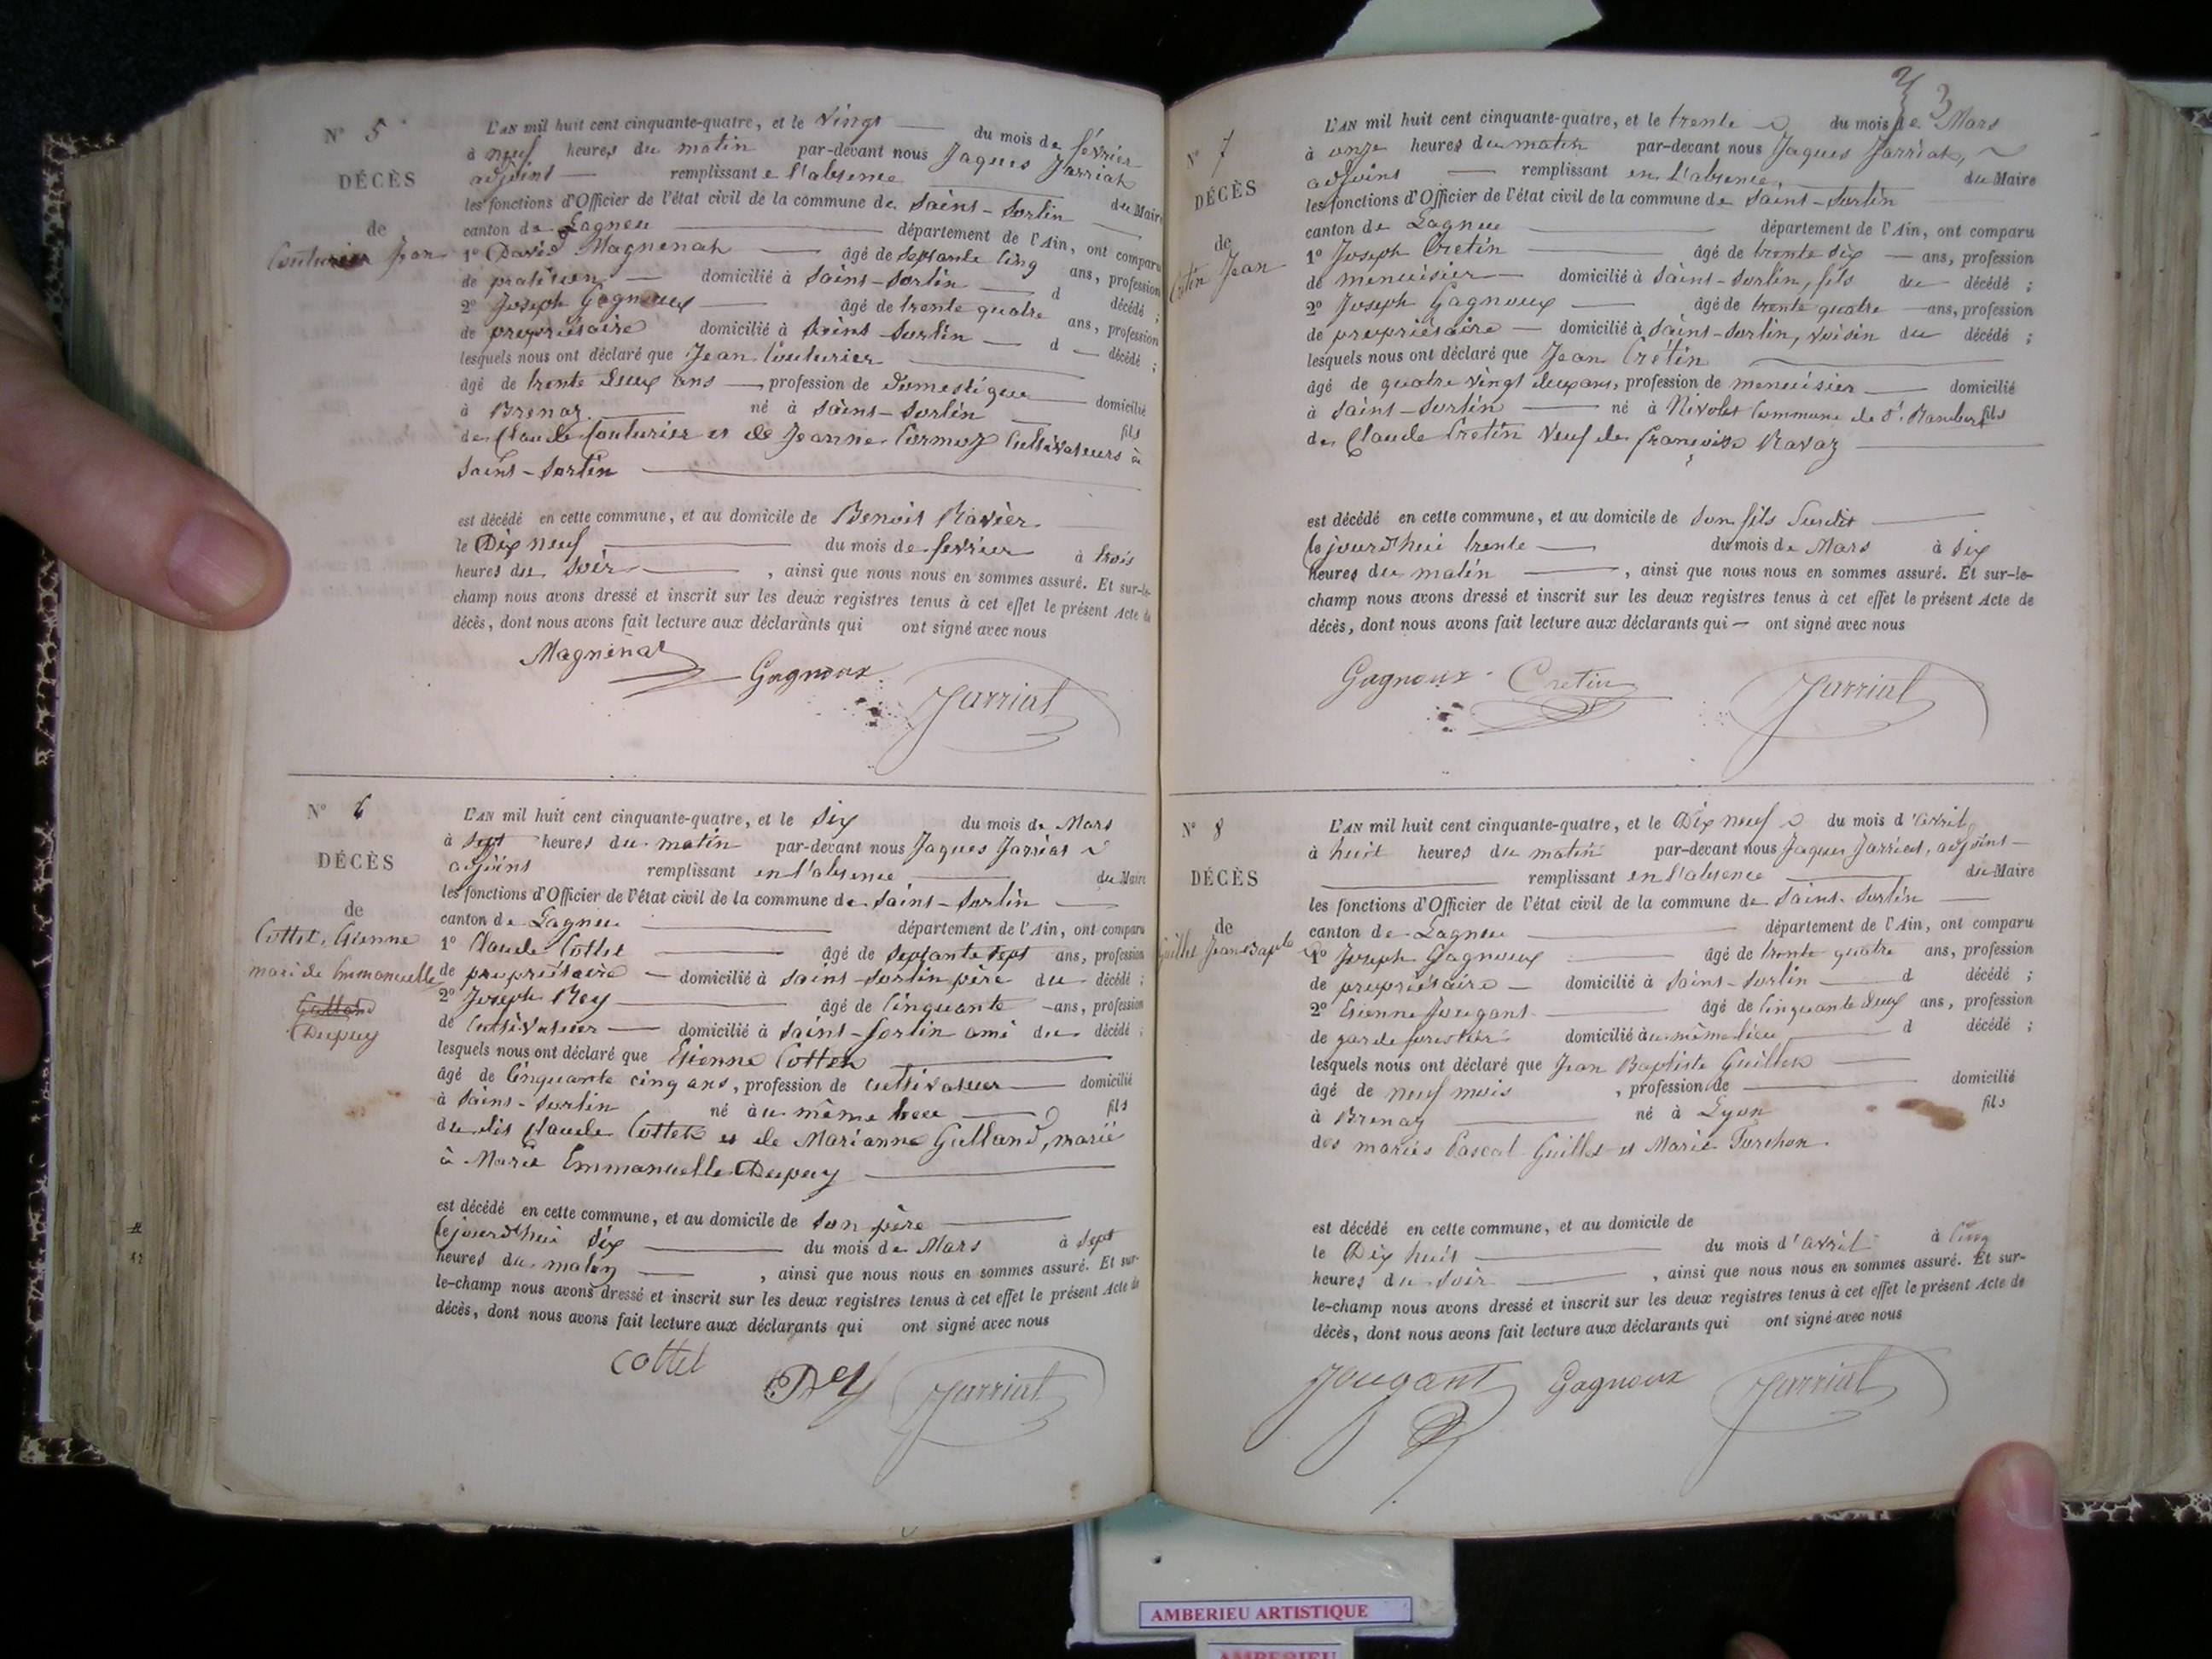 N° 5
DÉCÈS
de
Couturier Jean
L'AN mil huit cent cinquante-quatre, et le vingt du mois de février
à neuf heures du matin par-devant nous Jaques Jarriat
adjoint remplissant e l'absence du Maire
les fonctions d'Officier de l'état civil de la commune de Saint-Sorlin
canton de Lagneu département de l'Ain, ont comparu
1° David Magnenat âgé de septante cinq ans, profession
de praticien domicilié à Saint-Sorlin d décédé ;
2° Joseph Gagnoux âgé de trente quatre ans, profession
de propriétaire domicilié à Saint-Sorlin d décédé ;
lesquels nous ont déclaré que Jean Couturier
âgé de trente deux ans profession de domestique domicilié
à Brenaz né à Saint-Sorlin fils
de Claude Couturier et de Jeanne Cormoz Cultivateurs à
Saint-Sorlin
est décédé en cette commune, et au domicile de Benoit Ravier
le Dix neuf du mois de février à trois
heures du soir , ainsi que nous nous en sommes assuré. Et sur-le-
champ nous avons dressé et inscrit sur les deux registres tenus à cet effet le présent Acte de
décès, dont nous avons fait lecture aux déclarants qui ont signé avec nous
Magnenat Gagnoux Jarriat
N° 6
DÉCÈS
de
Cottet, Etienne
mari de Emmanuelle
Dupuy
L'AN mil huit cent cinquante-quatre, et le six du mois de Mars
à sept heures du matin par-devant nous Jaques Jarriat
adjoint remplissant en l'absence du Maire
les fonctions d'Officier de l'état civil de la commune de Saint-Sorlin
canton de Lagneu département de l'Ain, ont comparu
1° Claude Cottet âgé de septante sept ans, profession
de propriétaire domicilié à Saint-Sorlin père du décédé ;
2° Joseph Rey âgé de Cinquante ans, profession
de Cultivateur domicilié à Saint-Sorlin ami du décédé ;
lesquels nous ont déclaré que Etienne Cottet
âgé de Cinquante cinq ans, profession de cultivateur domicilié
à Saint-Sorlin né au même lieu fils
du dit Claude Cottet et de Marianne Gulland, marié
à Marie Emmanuelle Dupuy
est décédé en cette commune, et au domicile de son père
Cejourd'hui six du mois de Mars à sept
heures du matin , ainsi que nous nous en sommes assuré. Et sur-
le-champ nous avons dressé et inscrit sur les deux registres tenus à cet effet le présent Acte de
décès, dont nous avons fait lecture aux déclarants qui ont signé avec nous
Cottet Rey Jarriat
3
N° 7
DÉCÈS
de
Cretin Jean
L'AN mil huit cent cinquante-quatre, et le trente du mois de Mars
à onze heures du matin par-devant nous Jaques Jarriat,
adjoint remplissant en l'absence, du Maire
les fonctions d'Officier de l'état civil de la commune de Saint-Sorlin
canton de Lagneu département de l'Ain, ont comparu
1° Joseph Cretin âgé de trente six ans, profession
de menuisier domicilié à Saint-Sorlin, fils du décédé ;
2° Joseph Gagnoux âgé de trente quatre ans, profession
de propriétaire domicilié à Saint-Sorlin, voisin du décédé ;
lesquels nous ont déclaré que Jean Cretin
âgé de quatre vingt deux ans, profession de menuisier domicilié
à Saint-Sorlin né à Nivolet Commune de St. Rambert fils
de Claude Cretin Veuf de françoise Ravaz
est décédé en cette commune, et au domicile de son fils susdit
Cejourd'hui trente du mois de Mars à six
heures du matin , ainsi que nous nous en sommes assuré. Et sur-le-
champ nous avons dressé et inscrit sur les deux registres tenus à cet effet le présent Acte de
décès, dont nous avons fait lecture aux déclarants qui ont signé avec nous
Gagnoux Cretin Jarriat
N° 8
DÉCÈS
de
Guillet Jean Bapte
L'AN mil huit cent cinquante-quatre, et le Dix neuf du mois d'avril
à huit heures du matin par-devant nous Jaques Jarriat, adjoint
remplissant en l'absence du Maire
les fonctions d'Officier de l'état civil de la commune de Saint-Sorlin
canton de Lagneu département de l'Ain, ont comparu
1° Joseph Gagnoux âgé de trente quatre ans, profession
de propriétaire domicilié à Saint-Sorlin d décédé ;
2° Etienne Jougant âgé de Cinquante deux ans, profession
de garde forestier domicilié au même lieu d décédé ;
lesquels nous ont déclaré que Jean Baptiste Guillet
âgé de neuf mois , profession de domicilié
à Brenaz né à Lyon fils
des mariés Pascal Guillet et Marie Turchon.
est décédé en cette commune, et au domicile de
le Dix huit du mois d'avril à Cinq
heures du soir , ainsi que nous nous en sommes assuré. Et sur-
le-champ nous avons dressé et inscrit sur les deux registres tenus à cet effet le présent Acte de
décès, dont nous avons fait lecture aux déclarants qui ont signé avec nous
Jougant Gagnoux Jarriat
AMBERIEU ARTISTIQUE
AMBERIEU